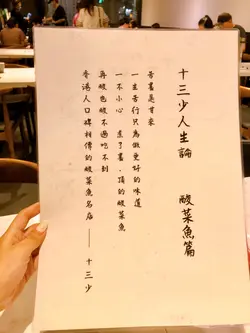 十三少人生論 酸菜魚篇
苦盡是甘來
一生苦行只為做更好的味道
一不小心 煮了頂的酸菜魚
再酸也酸不過吃不到
香港人口碑相傳的酸菜魚名店 —— 十三少